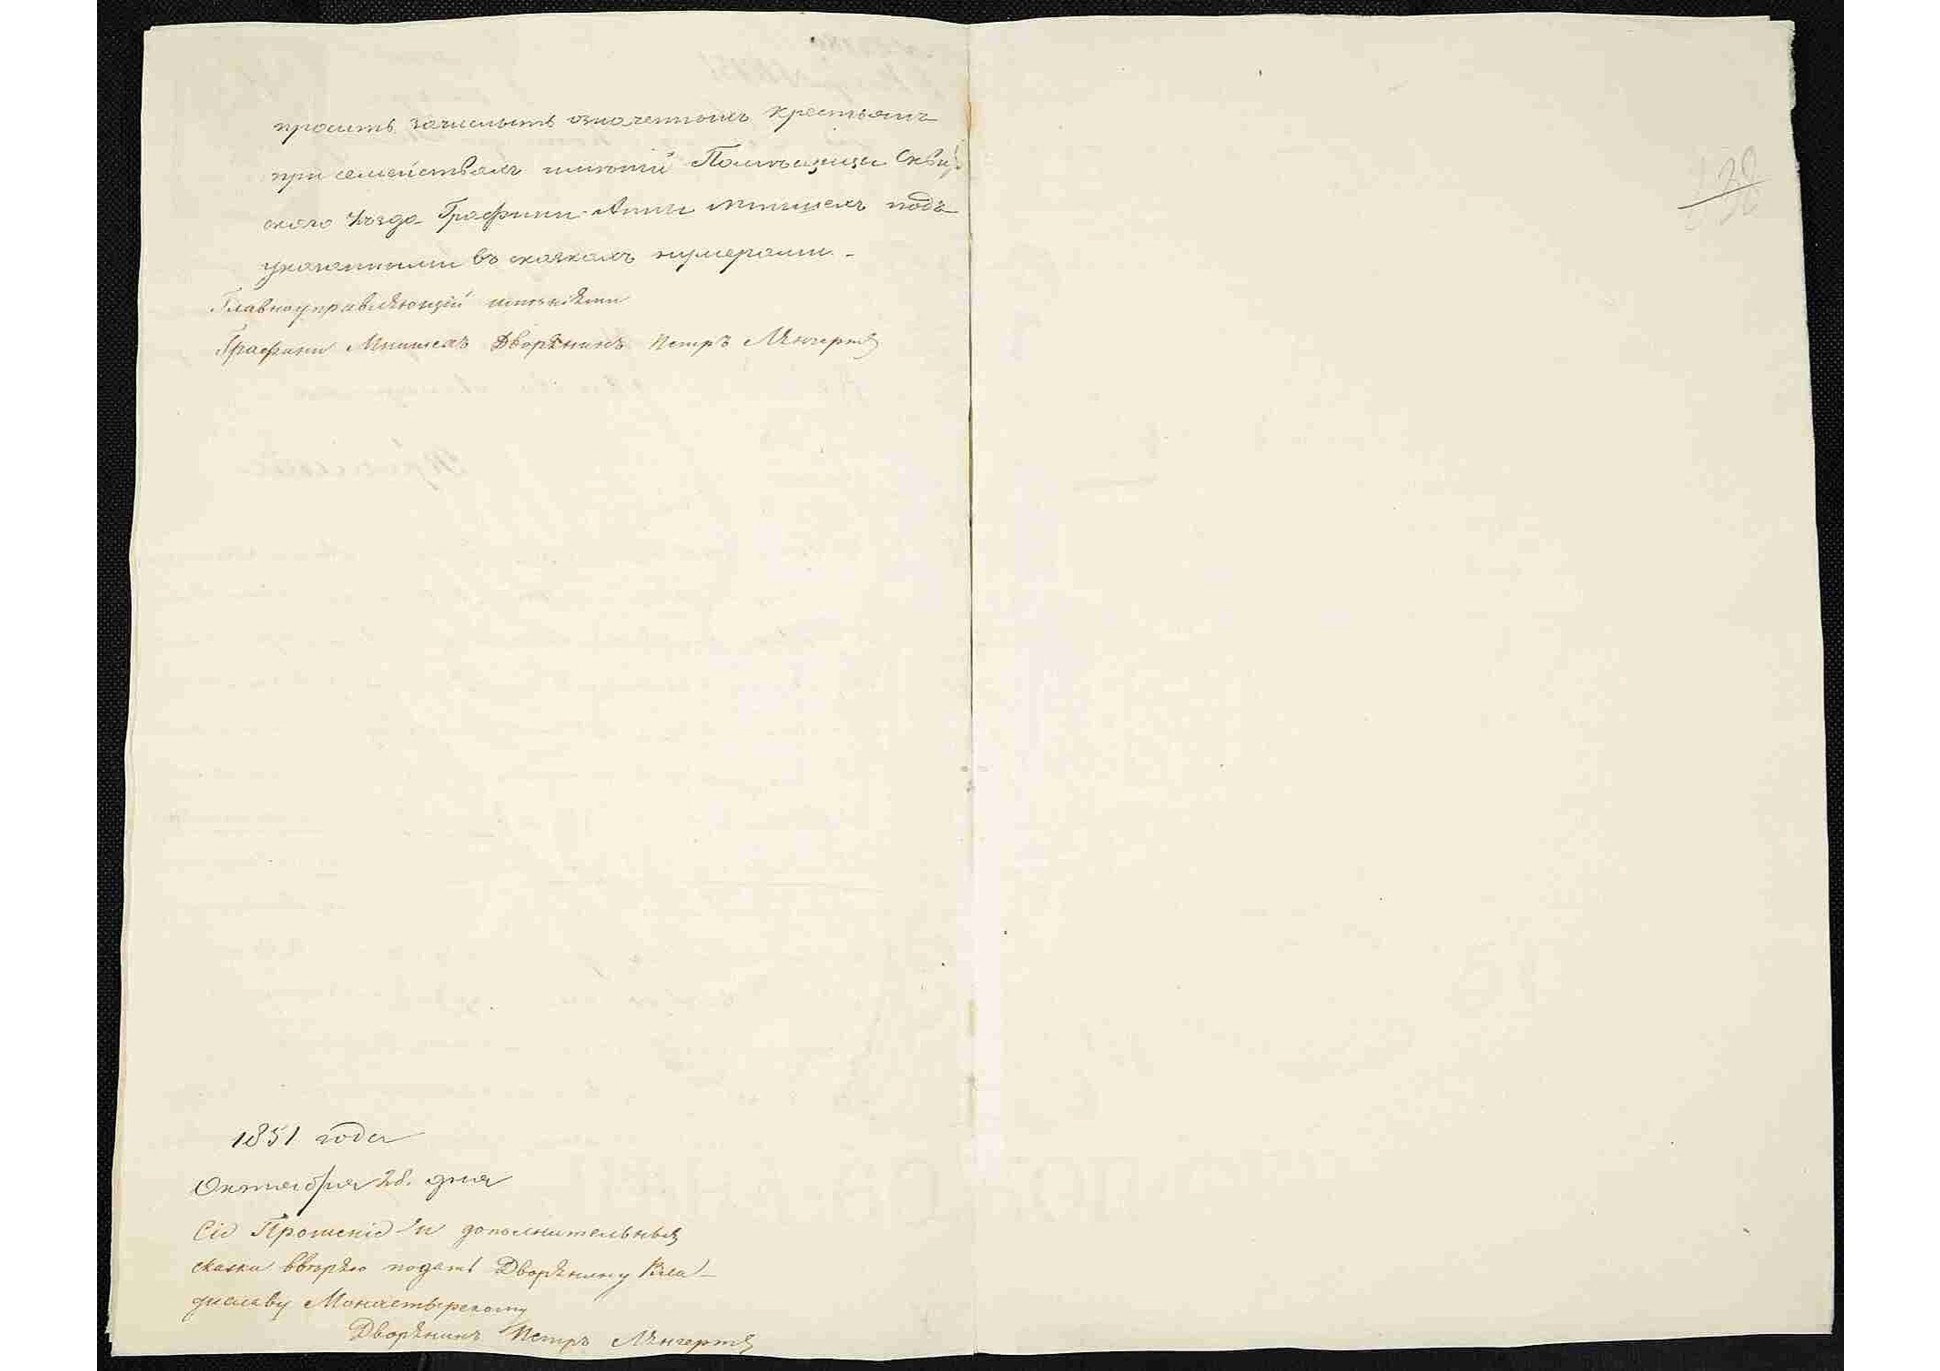 просить зачислить означенныхъ крестьянъ
при семействахъ имѣній Помѣщицы Сквир-
ского Уѣзда Графини Анны Мнишехъ подъ
указанными въ сказкахъ нумерами. -
Главноуправляющій имѣніями
Графини Мнишехъ Дворянинъ Петръ Ленгертъ
1851 года
Октября 28. дня
Сіе Прошеніе и дополнительныя
сказки ввѣряю подать Дворянину Вла-
диславу Монастырскому
Дворянинъ Петръ Ленгертъ